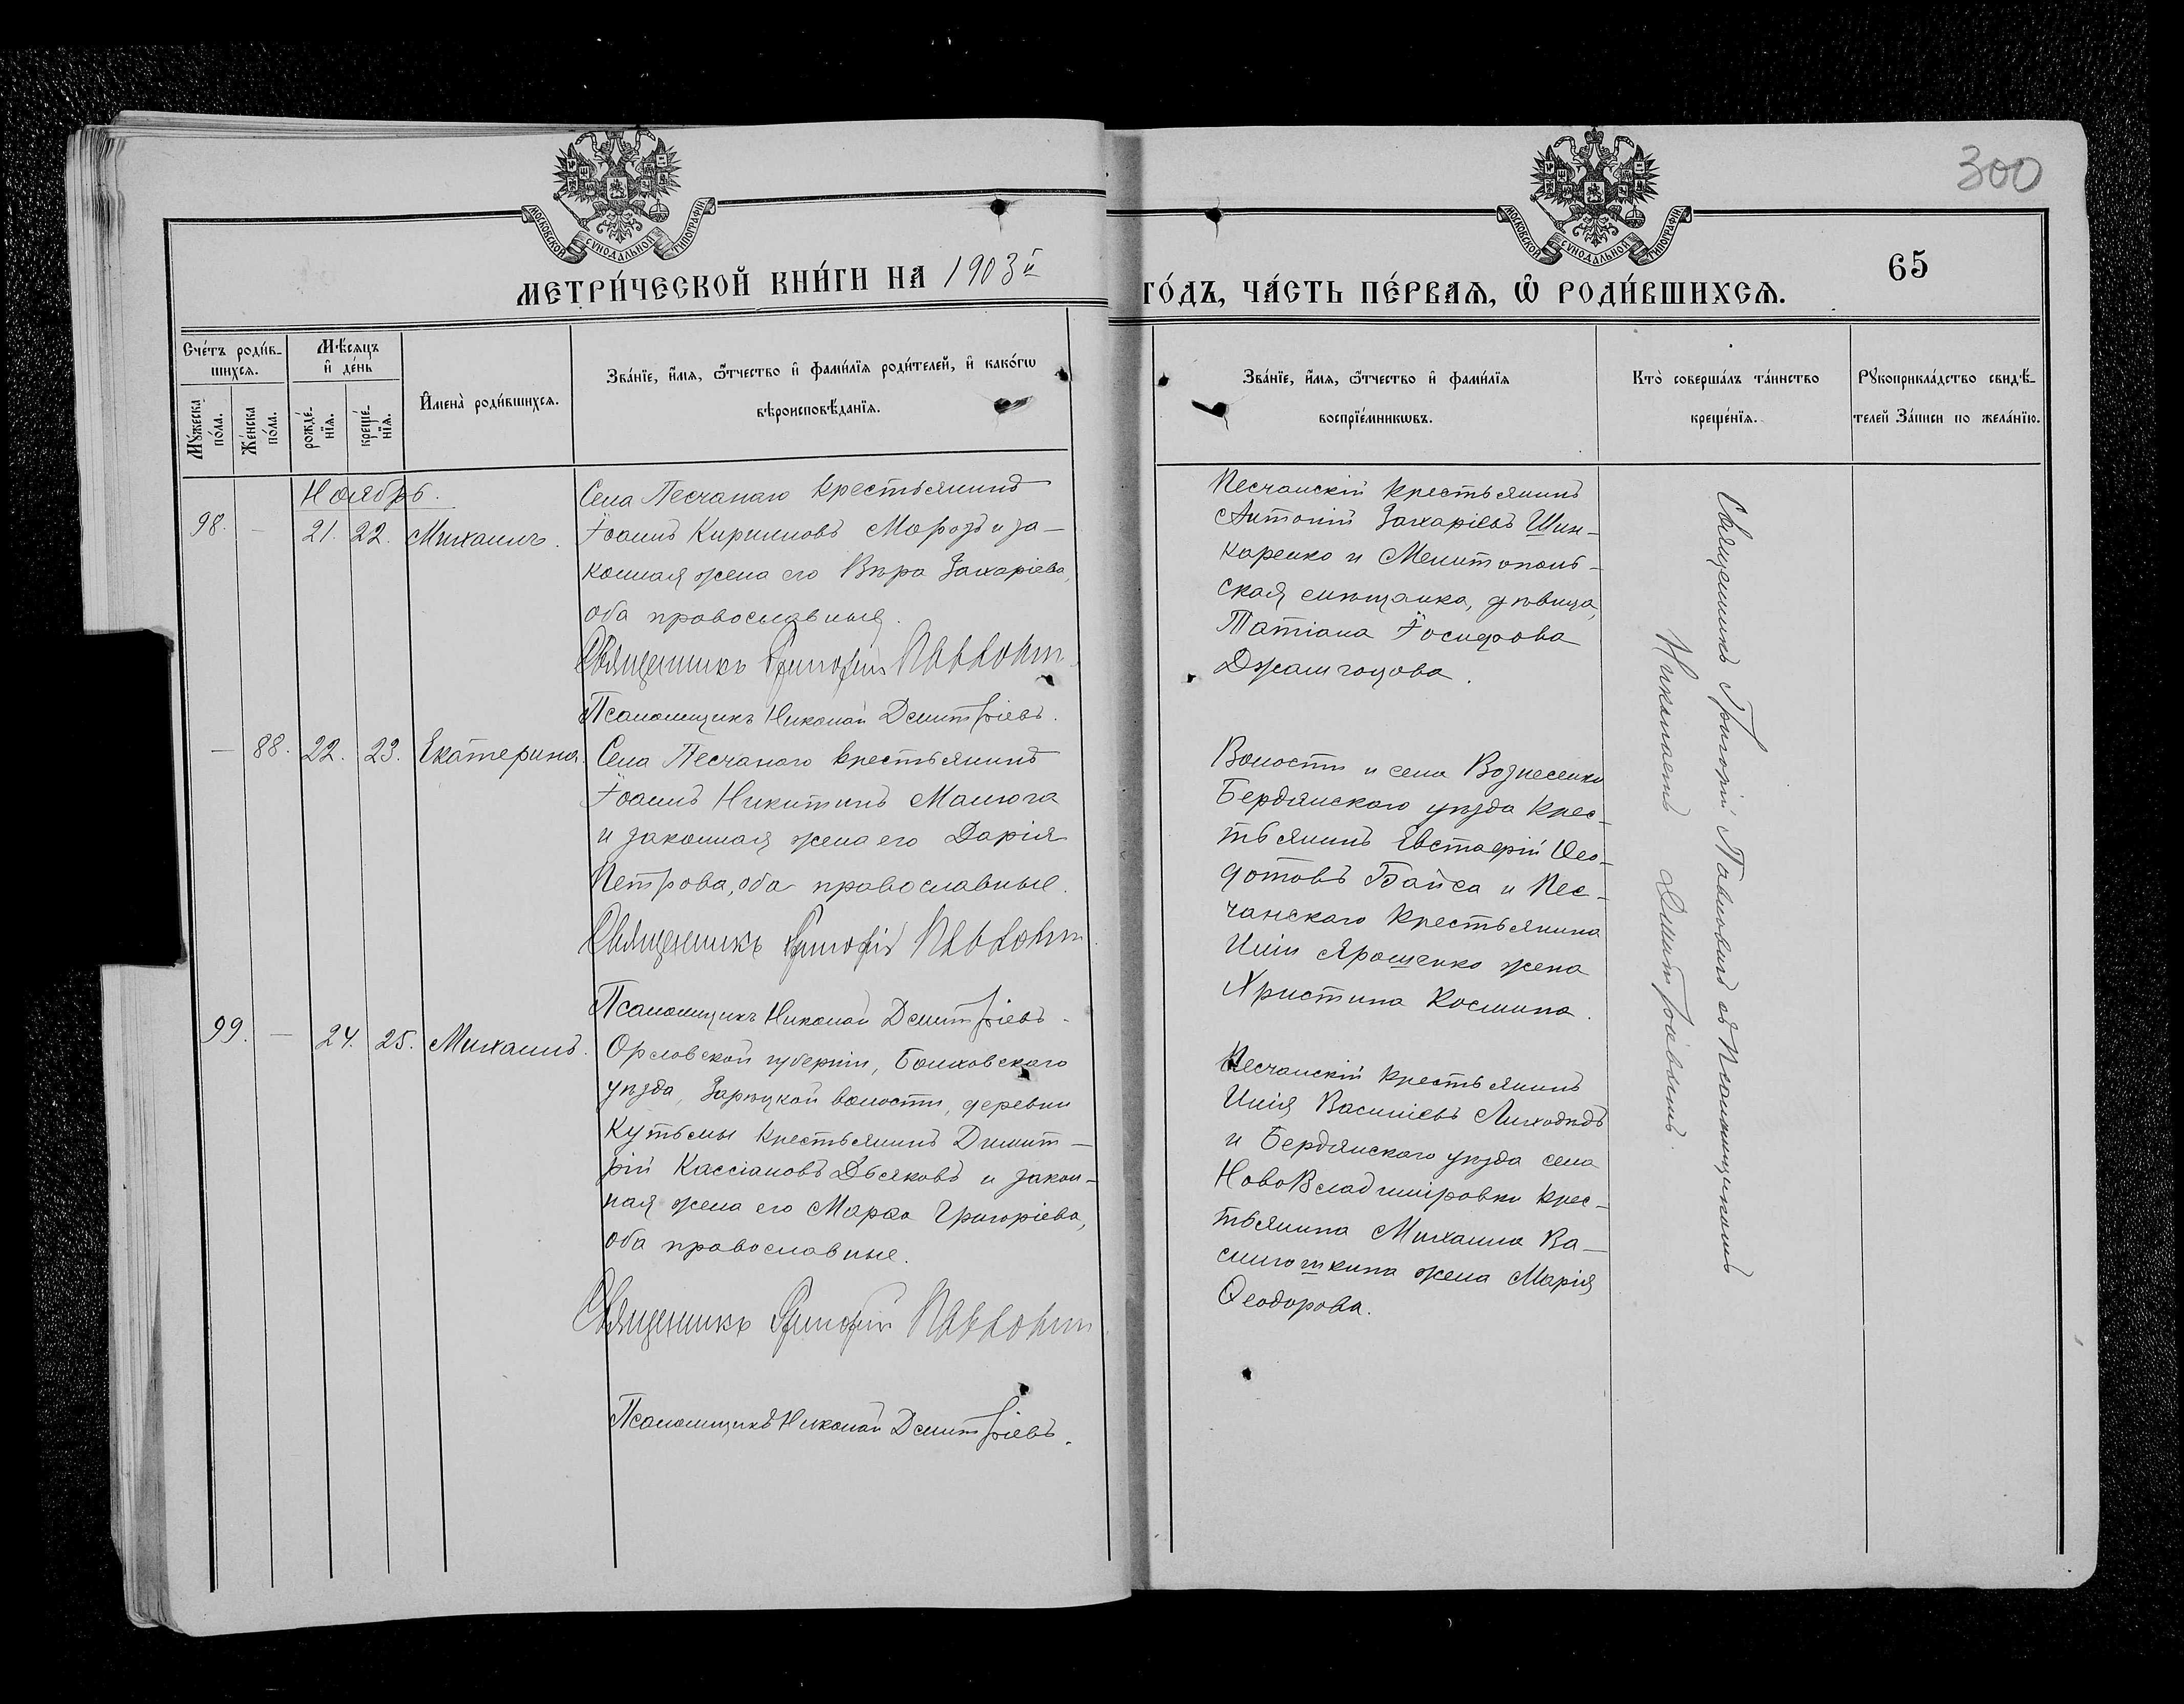 300
МОСКОВСКОЙ СУНОДАЛЬНОЙ ТИПОГРАФІИ
МОСКОВСКОЙ СУНОДАЛЬНОЙ ТИПОГРАФІИ
65
МЕТРИ́ЧЕСКОЙ КНИ́ГИ НА 1903й
ГО́ДЪ, ЧА́СТЬ ПЕ́РВАѦ, Ѡ҆ РОДИ́ВШИХСѦ.
Сче́тъ роди́в-
шихсѧ.
Мѣ́сѧцъ
и҆ де́нь
Мꙋ́жеска
по́ла.
Же́нска
по́ла.
рожде́-
нїѧ.
креще́-
нїѧ.
И҆мена̀ роди́вшихсѧ.
Зва́нїе, и҆́мѧ, ѻ҆́тчество и҆ фами́лїѧ роди́телей, и҆ како́гѡ
вѣроисповѣ́данїѧ.
Зва́нїе, и҆́мѧ, ѻ҆́тчество и҆ фами́лїѧ
воспрїе́мникѡвъ.
Кто̀ соверша́лъ та́инство
креще́нїѧ.
Рꙋкоприкла́дство свидѣ́-
телей За́писи по жела́нїю.
Ноябрь.
98. — 21. 22. Михаилъ.
Села Песчанаго крестьянинъ
Іоаннъ Кирилловъ Морозъ и за-
конная жена его Вѣра Захаріева,
оба православные.
Священникъ Григорій Павловичъ
Псаломщикъ Николай Дмитріевъ.
Песчанскій крестьянинъ
Антоній Захаріевъ Шин-
каренко и Мелитополь-
ская мѣщанка, дѣвица,
Татіана Іосифова
Джамгоцова.
— 88. 22. 23. Екатерина.
Села Песчаного крестьянинъ
Іоаннъ Никитинъ Малюга
и законная жена его Дарія
Петрова, оба православные.
Священникъ Григорій Павловичъ.
Псаломщикъ Николай Дмитріевъ.
Волости и села Вознесенки
Бердянского уѣзда крес-
тьянинъ Евстафій Ѳео-
дотовъ Байса и Пес-
чанскаго крестьянина
Иліи Ярошенко жена
Христина Космина.
99. — 24. 25. Михаилъ.
Орловской губерніи, Болховского
уѣзда, Зарѣцкой волости, деревни
Кутьмы крестьянинъ Димит-
рій Кассіановъ Дьяковъ и закон-
ная жена его Марѳа Григоріева,
оба православные.
Священникъ Григорій Павловичъ.
Псаломщикъ Николай Дмитріевъ.
Песчанскій крестьянинъ
Илія Василіевъ Лиходѣдъ
и Бердянского уѣзда села
НовоВладиміровки крес-
тьянина Михаила Ва-
силюшкина жена Марія
Ѳеодорова.
Священникъ Григорій Павловичъ съ Псаломщикомъ
Николаемъ Дмитріевымъ.